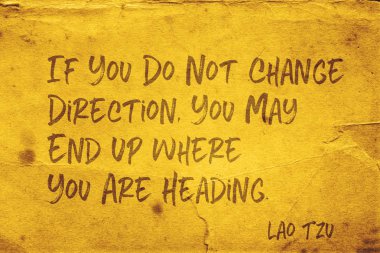 If You Do Not Change
Direction, You May
End up where
You Are Heading.
Lao Tzu